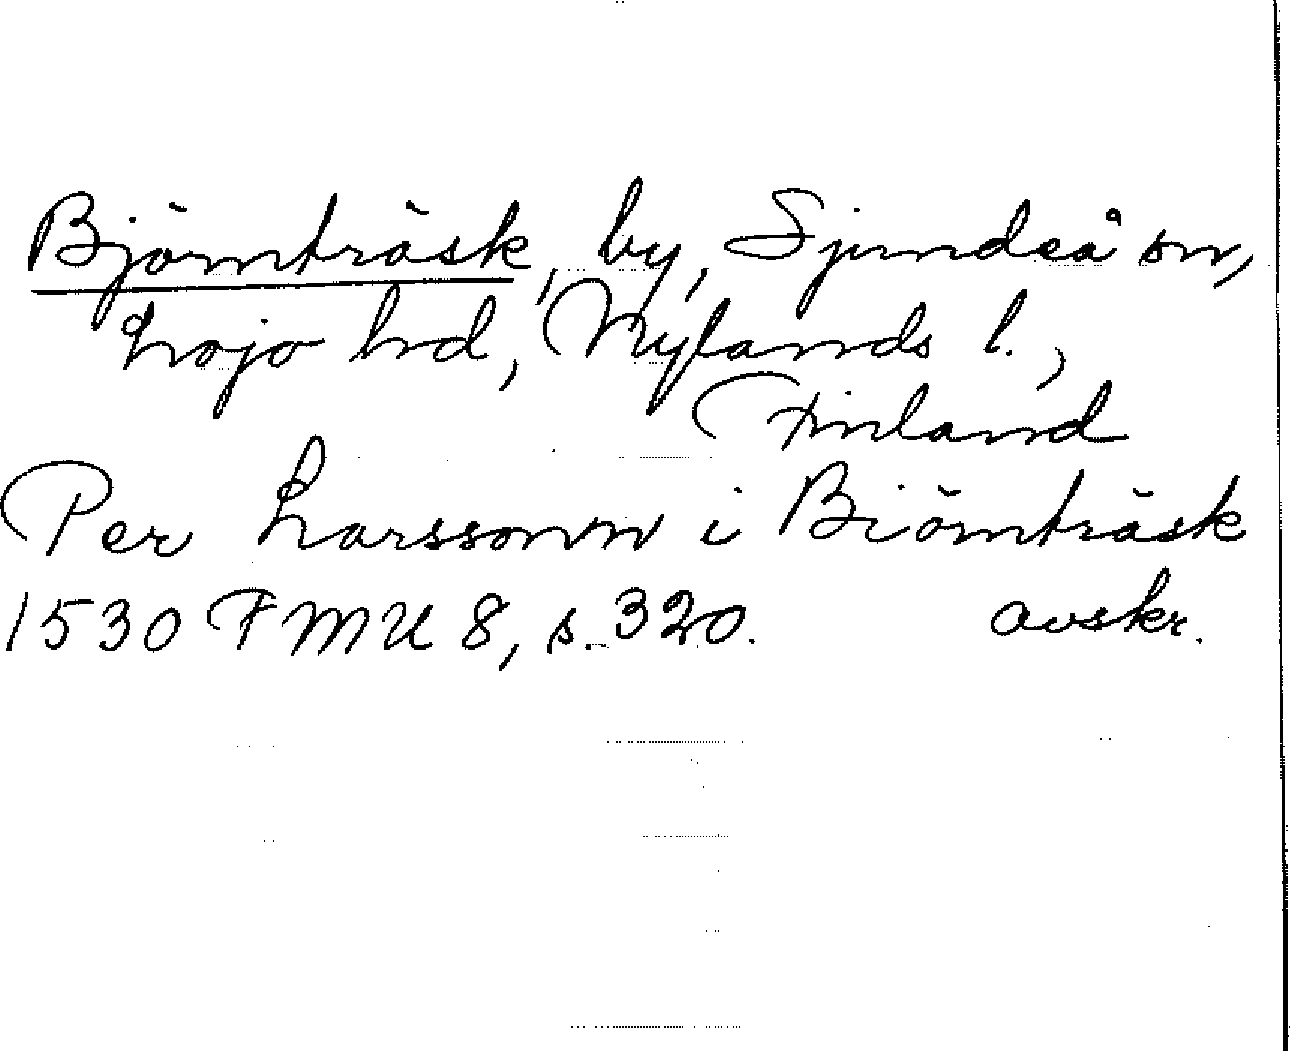 Björnträsk, by, Sjundeå sn,
Lojo hd, Nylands l.,
Finland
Per Larssonn i Biörnträsk
1530 FMU 8, s. 320. avskr.